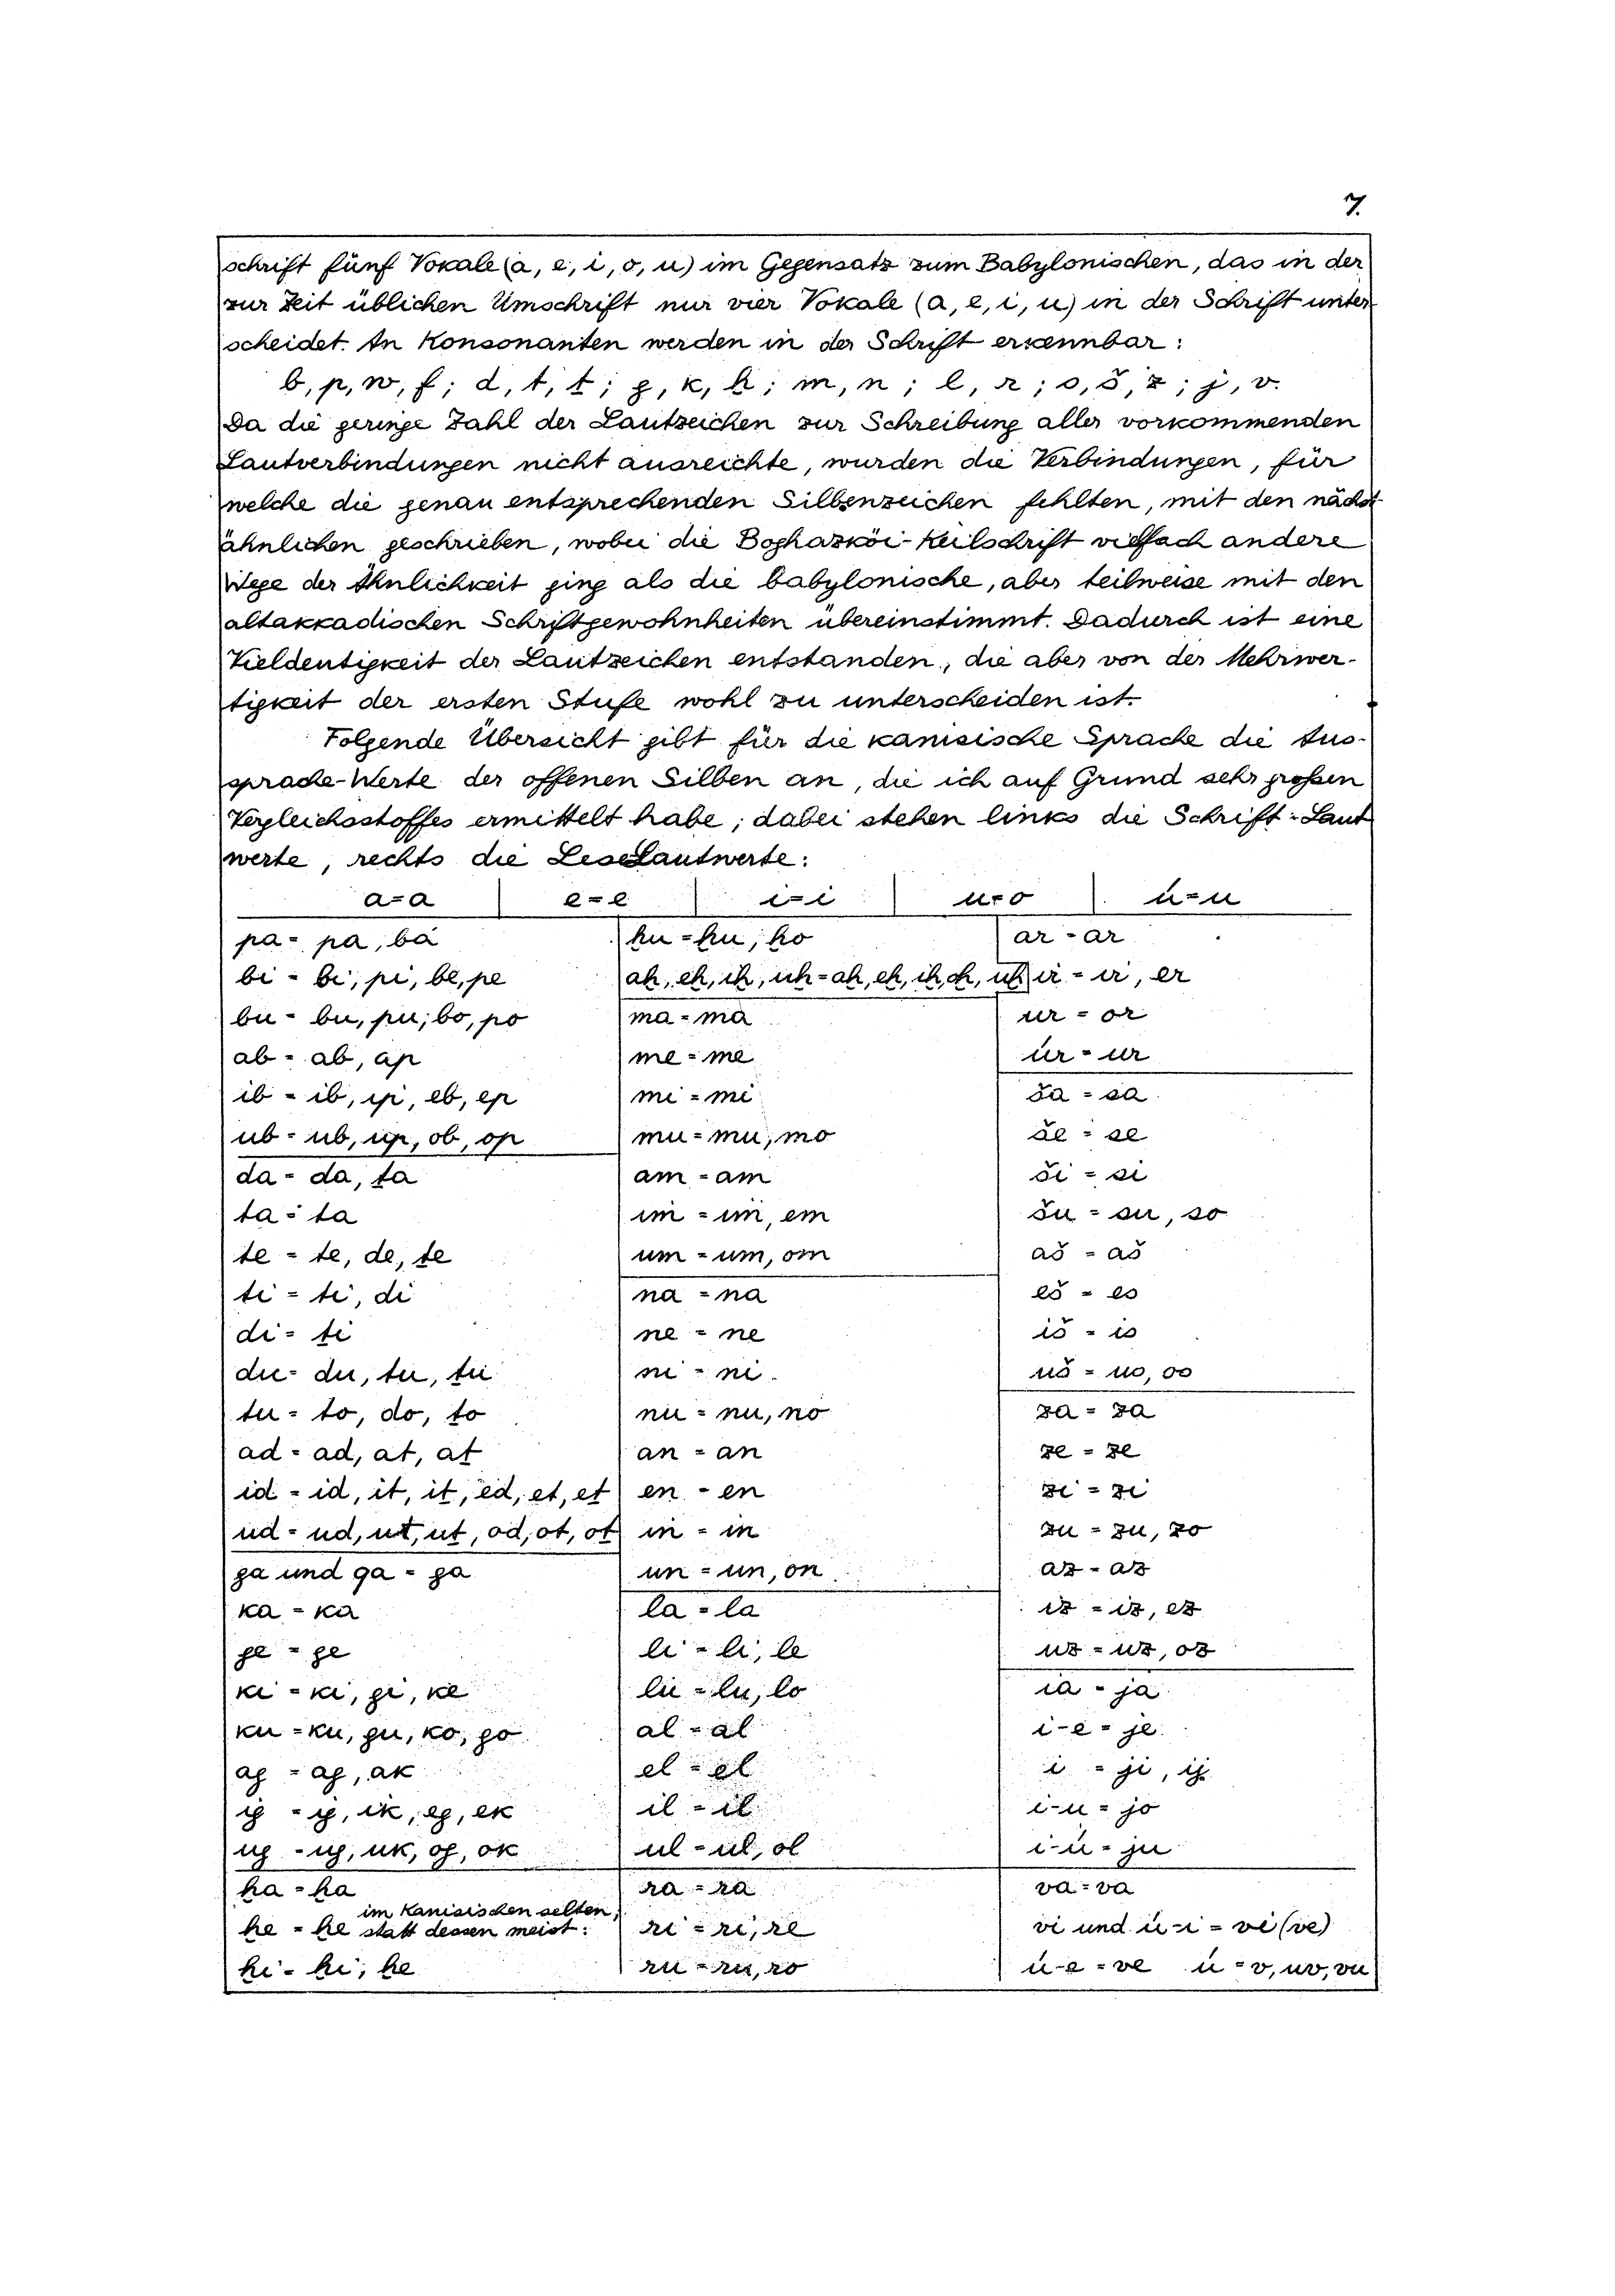 7.
schrift fünf Vokale (a, e, i, o, u) im Gegensatz zum Babylonischen, das in der
zur Zeit üblichen Umschrift nur vier Vokale (a, e, i, u) in der Schrift unter-
scheidet. An Konsonanten werden in der Schrift erkennbar:
b, p, w, f; d, t, ṭ; g, k, ḫ; m, n; l, r; s, š, z; j, v.
Da die geringe Zahl der Lautzeichen zur Schreibung aller vorkommenden
Lautverbindungen nicht ausreichte, wurden die Verbindungen, für
welche die genau entsprechenden Silbenzeichen fehlten, mit den nächst
ähnlichen geschrieben, wobei die Boghazköi-Keilschrift vielfach andere
Wege der Ähnlichkeit ging als die babylonische, aber teilweise mit den
altakkadischen Schriftgewohnheiten übereinstimmt. Dadurch ist eine
Vieldeutigkeit der Lautzeichen entstanden, die aber von der Mehrwer-
tigkeit der ersten Stufe wohl zu unterscheiden ist.
Folgende Übersicht gibt für die kanisische Sprache die Aus-
sprache-Werte der offenen Silben an, die ich auf Grund sehr großen
Vergleichsstoffes ermittelt habe; dabei stehen links die Schrift-Laut
werte, rechts die Leselautwerte:
a=a e=e i=i u=o ú=u
pa = pa, ba ḫu = ḫu, ḫo ar = ar
bi = bi, pi, be, pe aḫ, eḫ, iḫ, uḫ = aḫ, eḫ, iḫ, oḫ, uḫ ir = ir, er
bu = bu, pu, bo, po ma = ma ur = or
ab = ab, ap me = me úr = ur
ib = ib, ip, eb, ep mi = mi ša = sa
ub = ub, up, ob, op mu = mu, mo še = se
da = da, ṭa am = am ši = si
ta = ta im = im, em šu = su, so
te = te, de, ṭe um = um, om aš = aš
ti = ti, di na = na eš = es
di = ṭi ne = ne iš = is
du = du, tu, ṭu ni = ni uš = us, os
tu = to, do, ṭo nu = nu, no za = za
ad = ad, at, aṭ an = an ze = ze
id = id, it, iṭ, ed, et, eṭ en = en zi = zi
ud = ud, ut, uṭ, od, ot, oṭ in = in zu = zu, zo
ga und qa = ga un = un, on az = az
ka = ka la = la iz = iz, ez
ge = ge li = li, le uz = uz, oz
ki = ki, gi, ke lu = lu, lo ia = ja
ku = ku, gu, ko, go al = al i-e = je
ag = ag, ak el = el i = ji, ij
ig = ig, ik, eg, ek il = il i-u = jo
ug = ug, uk, og, ok ul = ul, ol i-ú = ju
ḫa = ḫa ra = ra va = va
im Kanisischen selten,
ḫe = ḫe statt dessen meist: ri = ri, re vi und ú-i = vi (ve)
ḫi = ḫi, ḫe ru = ru, ro ú-e = ve ú = v, uv, vu